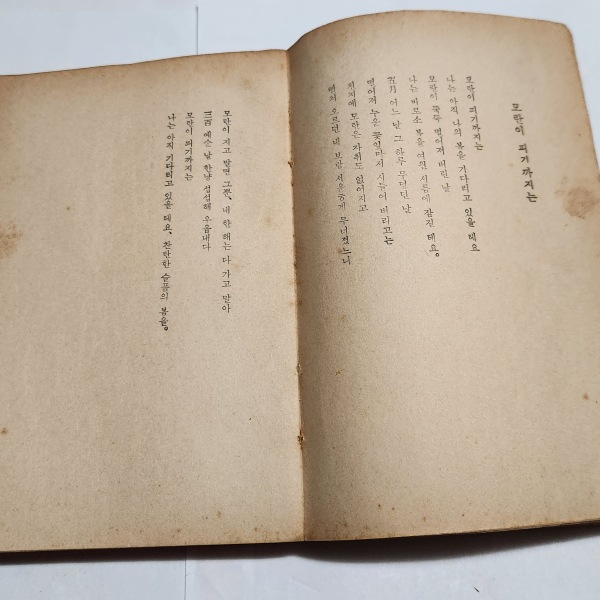 모란이 피기까지는
모란이 피기까지는
나는 아직 나의 봄을 기다리고 있을 테요
모란이 뚝뚝 떨어져 버린 날
나는 비로소 봄을 여읜 서름에 잠길 테요。
五月 어느 날 그 하루 무덥던 날
떨어져 누은 꽃잎마저 시들어 버리고는
천지에 모란은 자취도 없어지고
뻗쳐 오르던 내 보람 서운ㅎ게 무너졌느니
모란이 지고 말면 그뿐、 내 한 해는 다 가고 말아
三百 예순 날 한냥 섭섭해 우옵내다
모란이 피기까지는
나는 아직 기다리고 있을 테요、 찬란한 슬픔의 봄을。